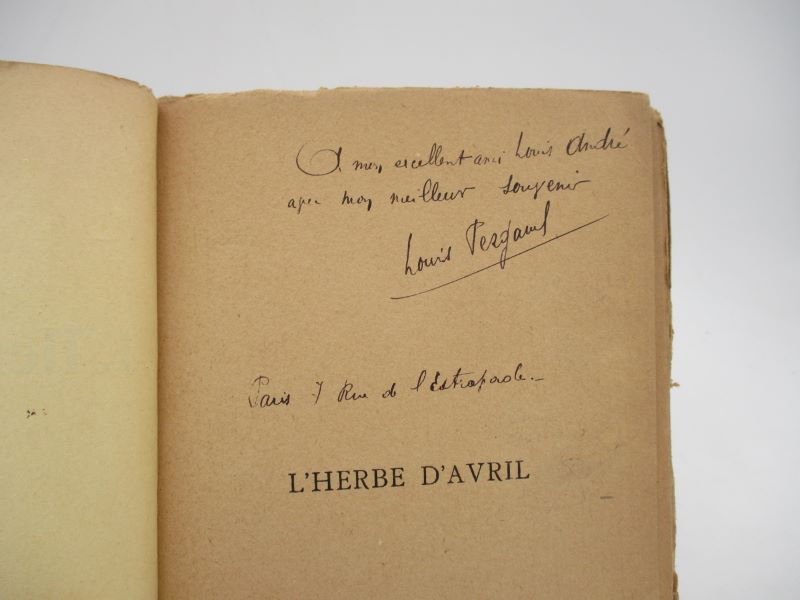 A mon excellent ami Louis André
avec mon meilleur souvenir
Louis Pergaud
Paris 7 Rue de l'Estrapade.
L'HERBE D'AVRIL